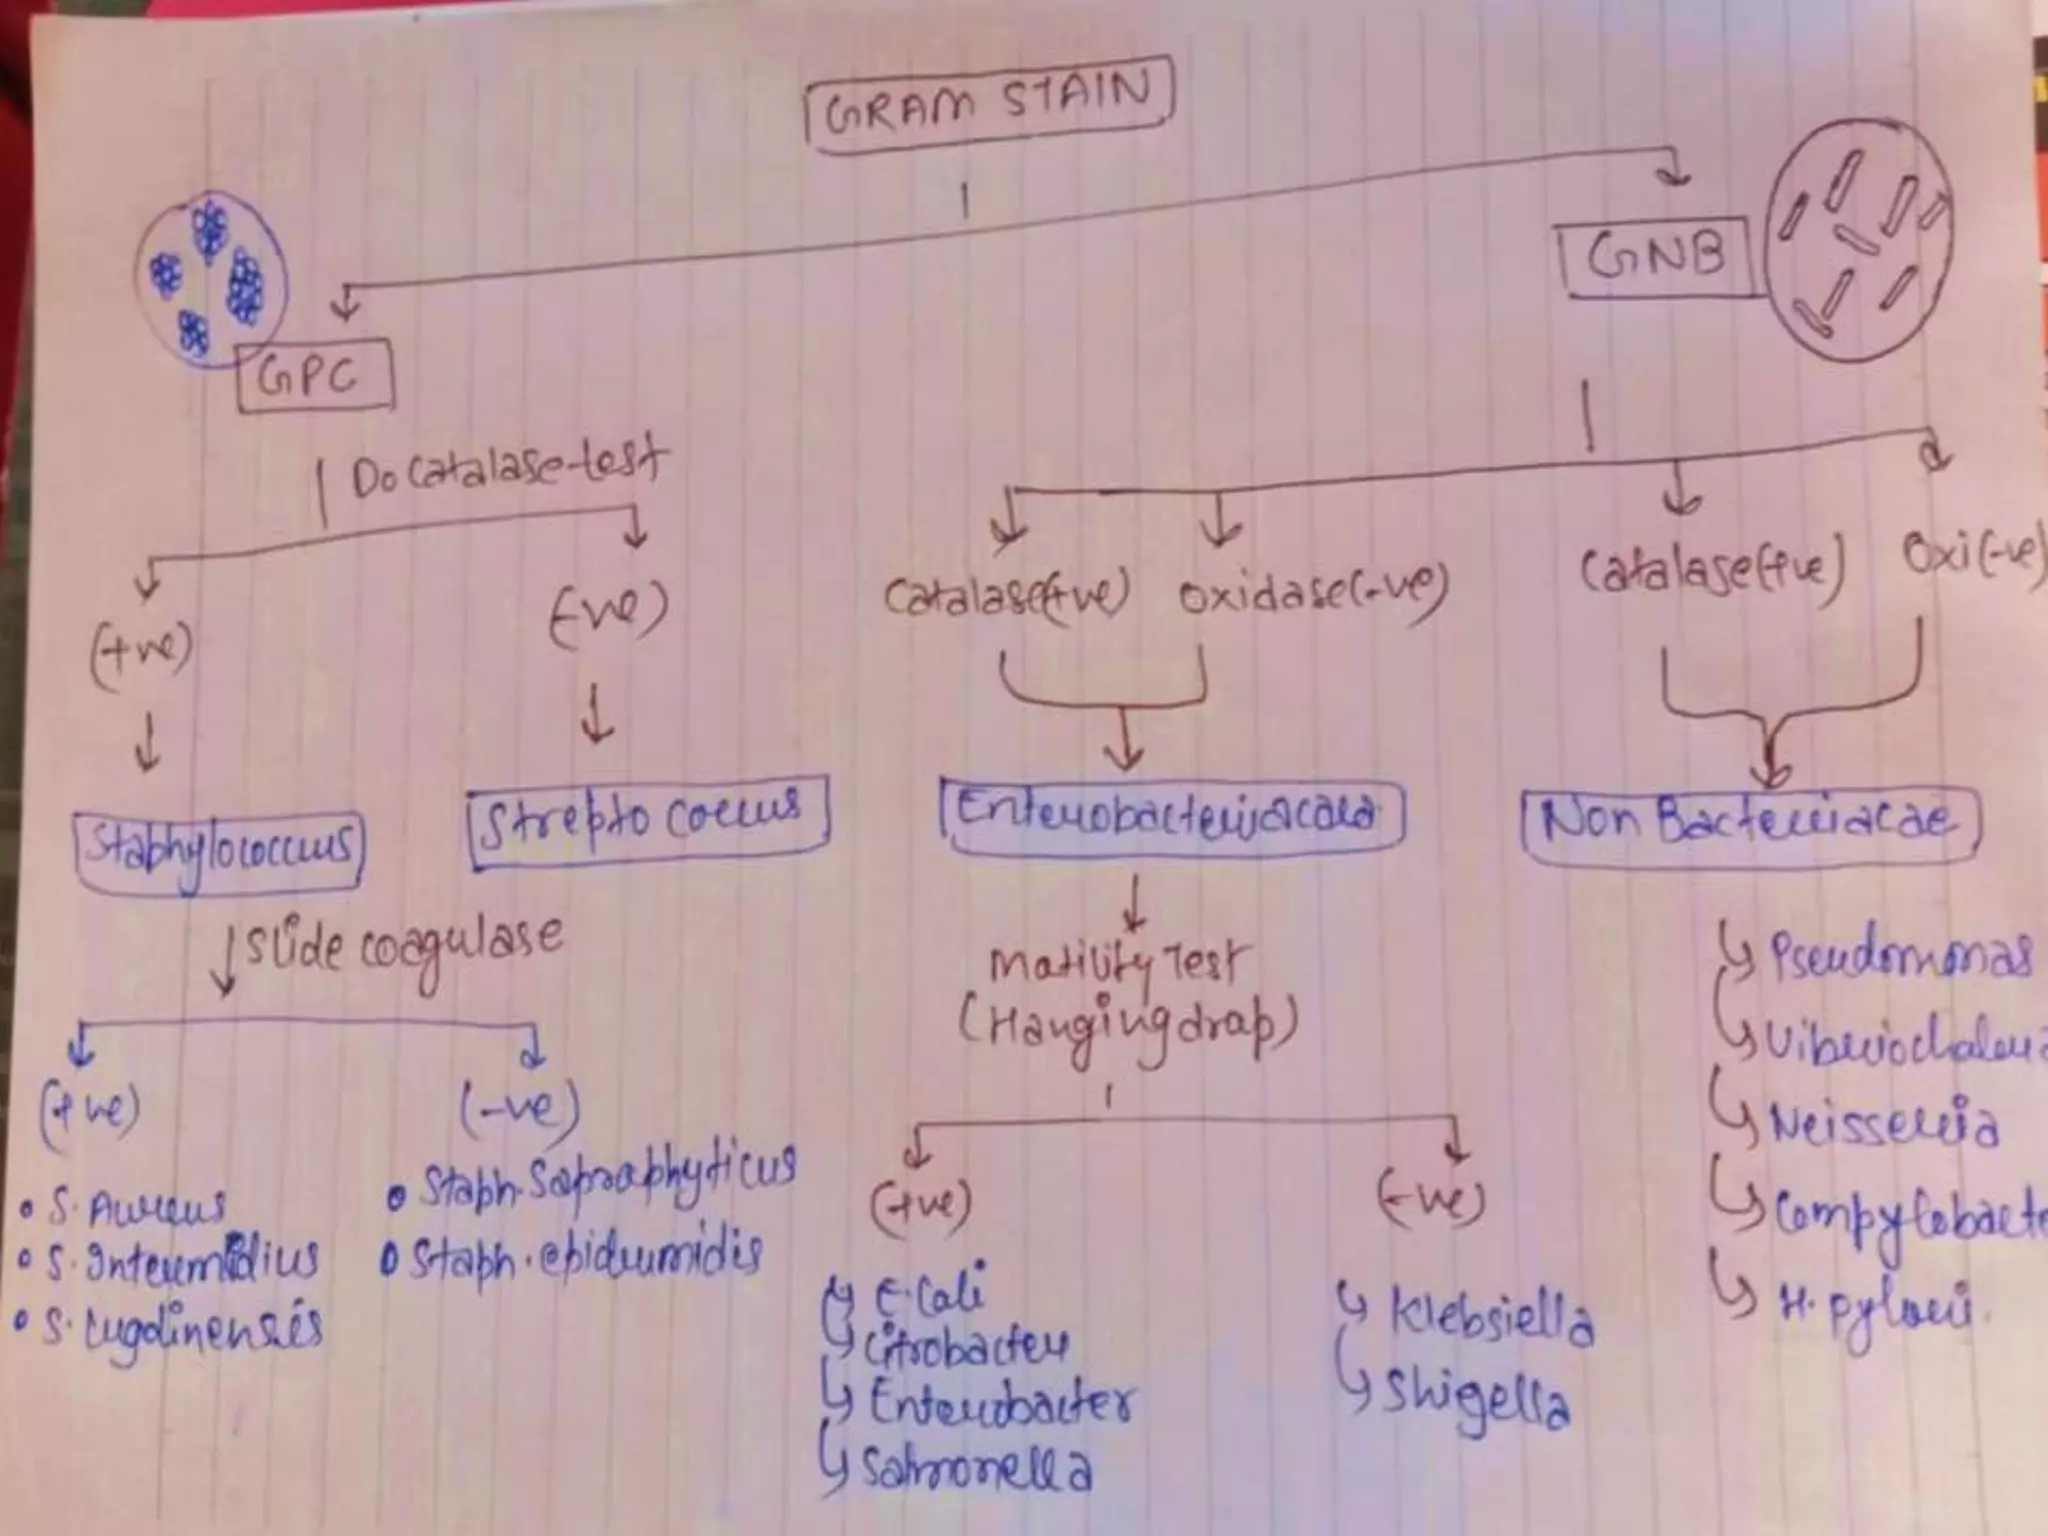 GRAM STAIN
GNB
GPC
Do Catalase test
(+ve)
(-ve)
Catalase(+ve)
Oxidase(-ve)
Catalase(+ve)
Oxi(-ve)
Staphylococcus
Strepto coccus
Enterobacteriacaea
Non Bacteriacae
Slide coagulase
(+ve)
(-ve)
• S. Aureus
• S. Intermidius
• S. Lugdinensis
• Staph. Sapraphyticus
• Staph. epidermidis
Matility Test
(Hanging drap)
(+ve)
(-ve)
↳ E. Cali
↳ Citrobacter
↳ Enterobacter
↳ Salmonella
↳ Klebsiella
↳ Shigella
↳ Pseudomonas
↳ Vibriochalera
↳ Neisseria
↳ Compylobacte
↳ H. pylori.